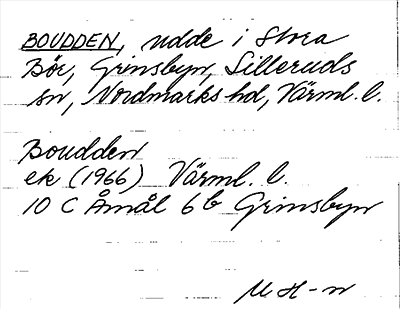 BOUDDEN, udde i Stora
Bör, Grinsbyn, Silleruds
sn, Nordmarks hd, Värml. l.
Boudden
ek (1966) Värml. l.
10 C Åmål 6 b Grinsbyn
M H-n